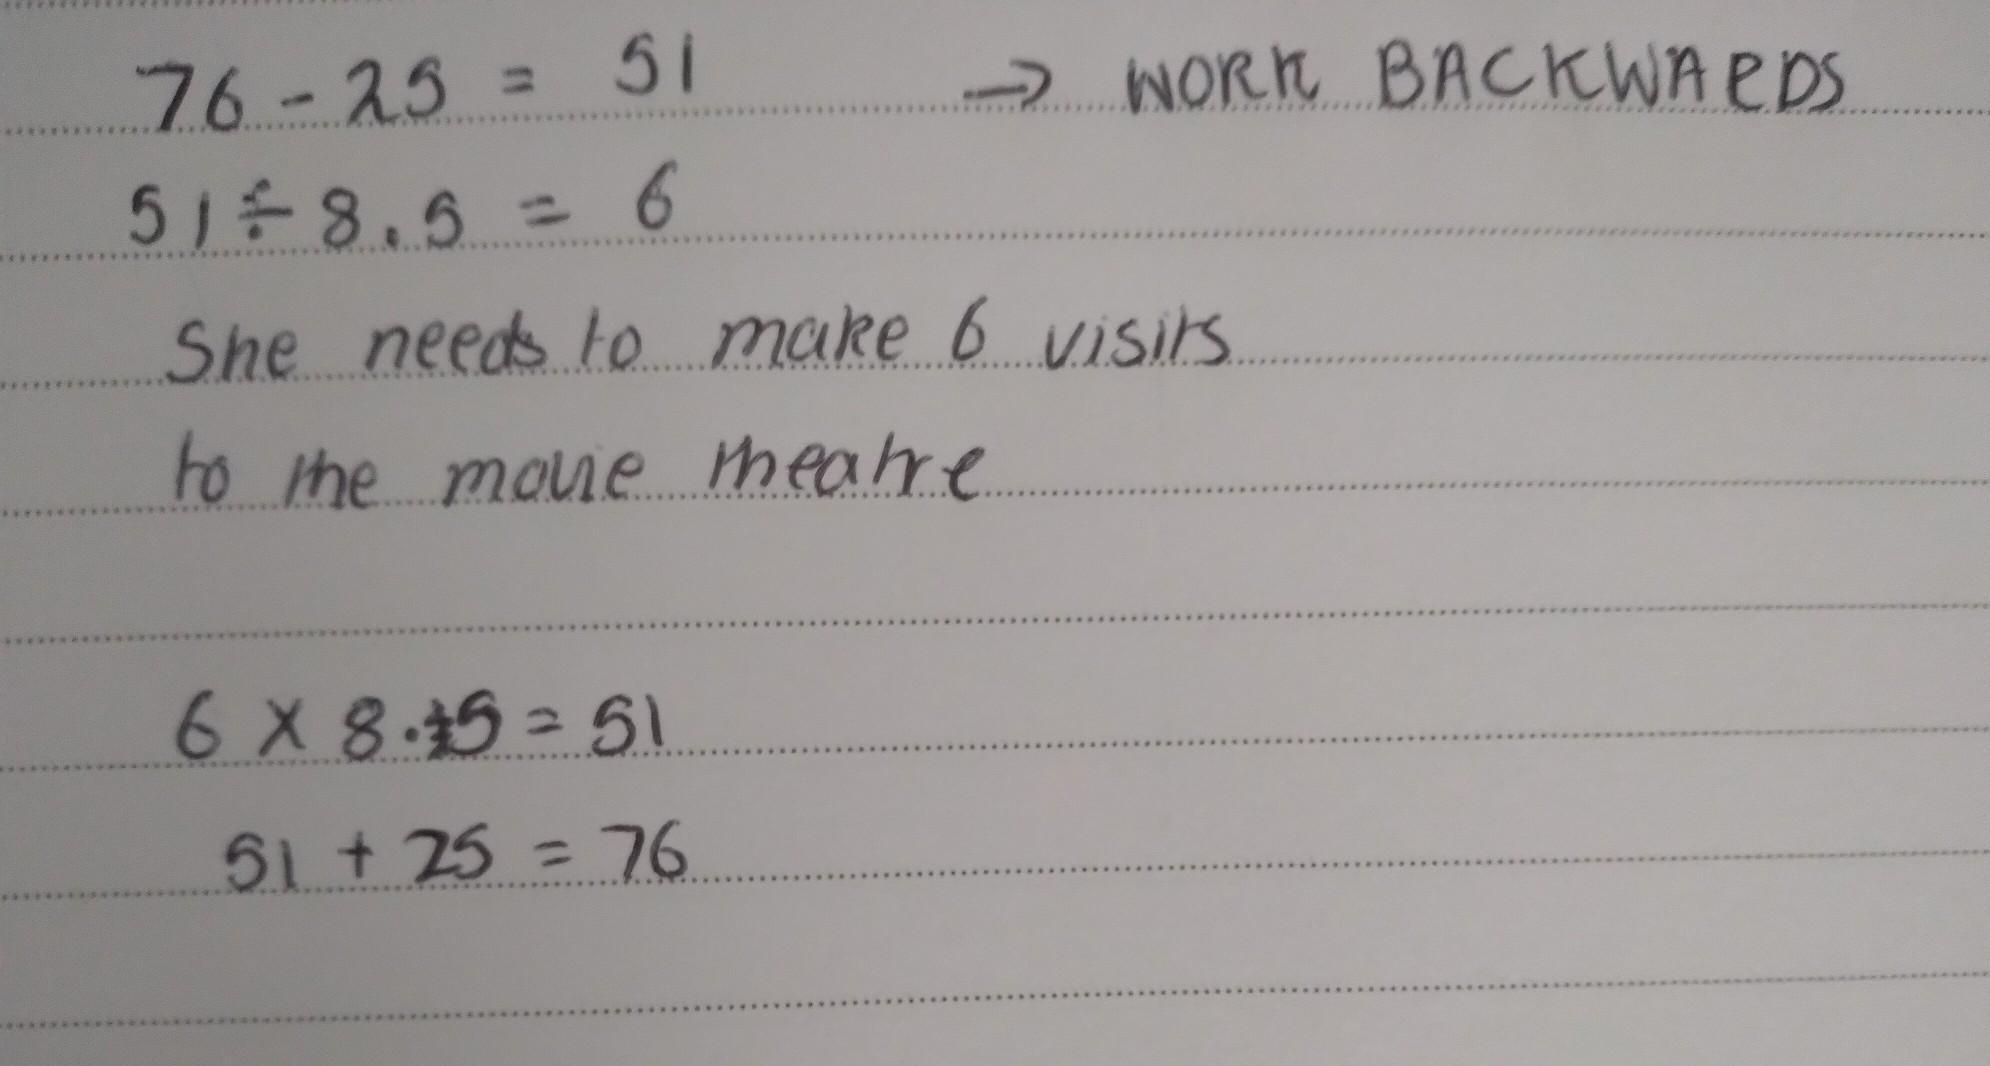 76 - 25 = 51 → WORK BACKWARDS
51 ÷ 8.5 = 6
She needs to make 6 visits
to the movie theatre
6 x 8.5 = 51
51 + 25 = 76